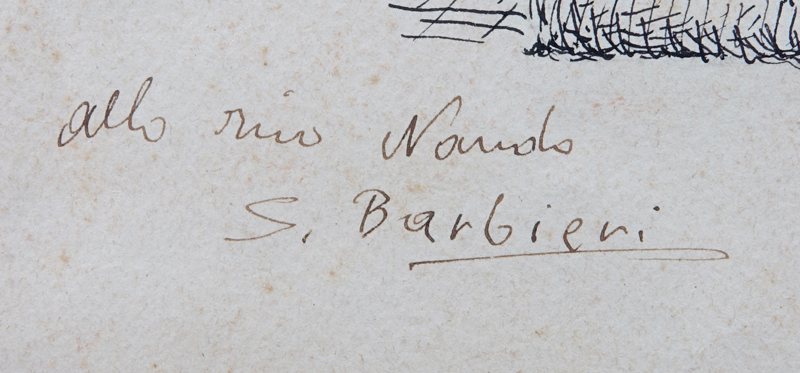 allo zio Nando
S. Barbieri